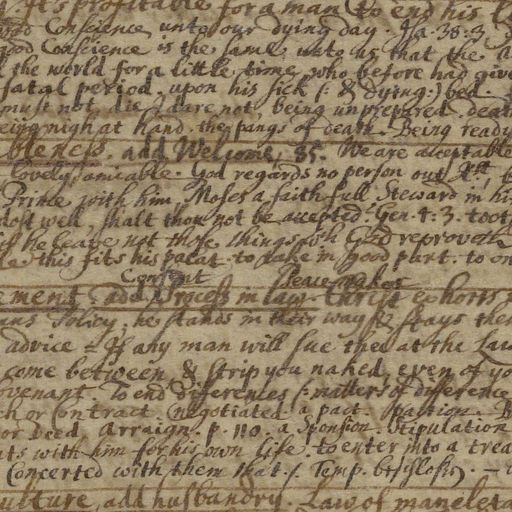 It's profitable for a man to end his
good Conscience unto our dying day. Isa. 38. 3.
good Conscience is the same unto us that the
the world for a little time, who before had give
fatal period. upon his sick (: & dying:) bed.
must not die I dare not, being unprepared. death
being nigh at hand. the pangs of death. Being ready
bleness. add Welcome, 85. We are acceptable
lovely, amicable. God regards no person out
Prince with him, Moses a faithfull Steward in his
dost well, shalt thou not be accepted. Gen. 4. 3. took
if he leave not those things wch God reproveth
this fits his palat. to take in good part. to
Consent Peace-maker
ement add Process in law. Christ exhorts
Policy, he stands in their way & stays them
advice = If any man will sue thee at the Law
come between & strip you naked, even of yo
ovenant. To end differences (: matters of difference
h or Contract (negotiated. a pact. paction.
or Deed. Arraign. p. 110. a Sponsion. Stipulation
ts with him for his own life. to enter into a trea
Concerted with them that. (. Temp. br: glofs)
ulture, add husbandry. Law of